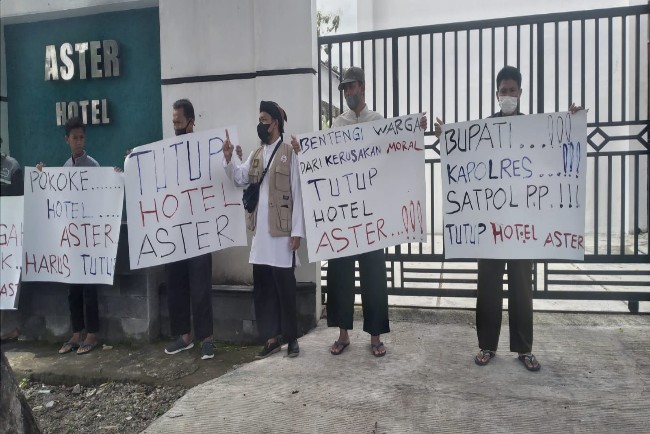 ASTER
HOTEL
K..
AST
POKOKE.......
HOTEL....
ASTER
HARUS TUTUP
TUTUP
HOTEL
ASTER
BENTENGI WARGA
DARI KERUSAKAN MORAL
TUTUP
HOTEL
ASTER...!!!
BUPATI....!!!
KAPOLRES...!!!
SATPOL P.P.!!!
TUTUP HOTEL ASTER